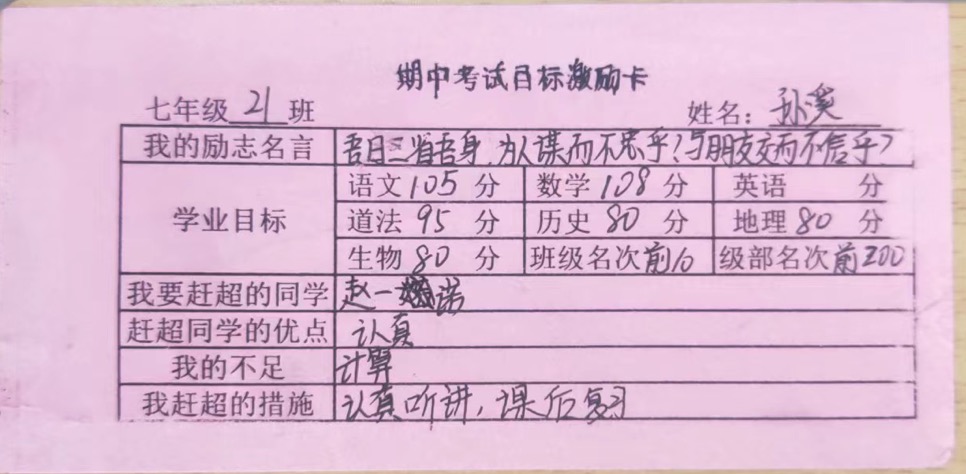 期中考试目标激励卡
七年级 21 班 姓名：孙溪
我的励志名言 吾日三省吾身，为人谋而不忠乎？与朋友交而不信乎？
学业目标 语文 105 分 数学 108 分 英语 分
道法 95 分 历史 80 分 地理 80 分
生物 80 分 班级名次 前10 级部名次 前200
我要赶超的同学 赵一诺
赶超同学的优点 认真
我的不足 计算
我赶超的措施 认真听讲，课后复习